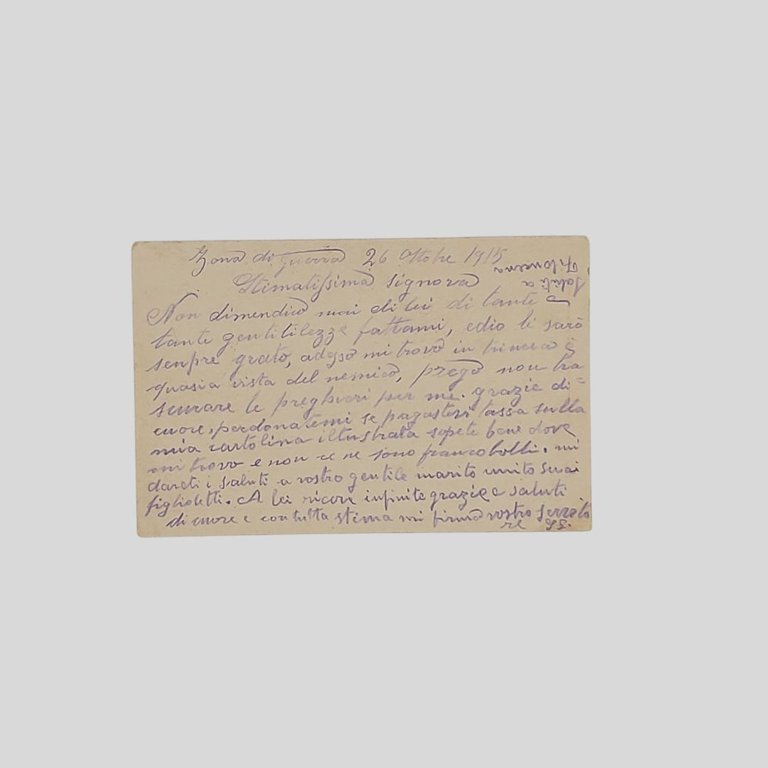 Zona di guerra 26 Ottobre 1915
Stimatissima Signora
Saluti a
Filomena
Non dimendico mai di lei di tante e
tante gentilezze fattami, edio le sarò
senpre grato, adesso mi trovo in trincea e
quasia vista del nemico, prego non tra
scurare le preghieri per me. grazie di=
cuore, perdonatemi se pagasteri tassa sulla
mia cartolina illustrata sapete bene dove
mi trovo e non ce ne sono francobolli. mi
dareti i saluti a vostro gentile marito unito suoi
figlioletti. A lei riceve infinite grazie e saluti
di cuore e con tutta stima mi firmo vostro servito
re